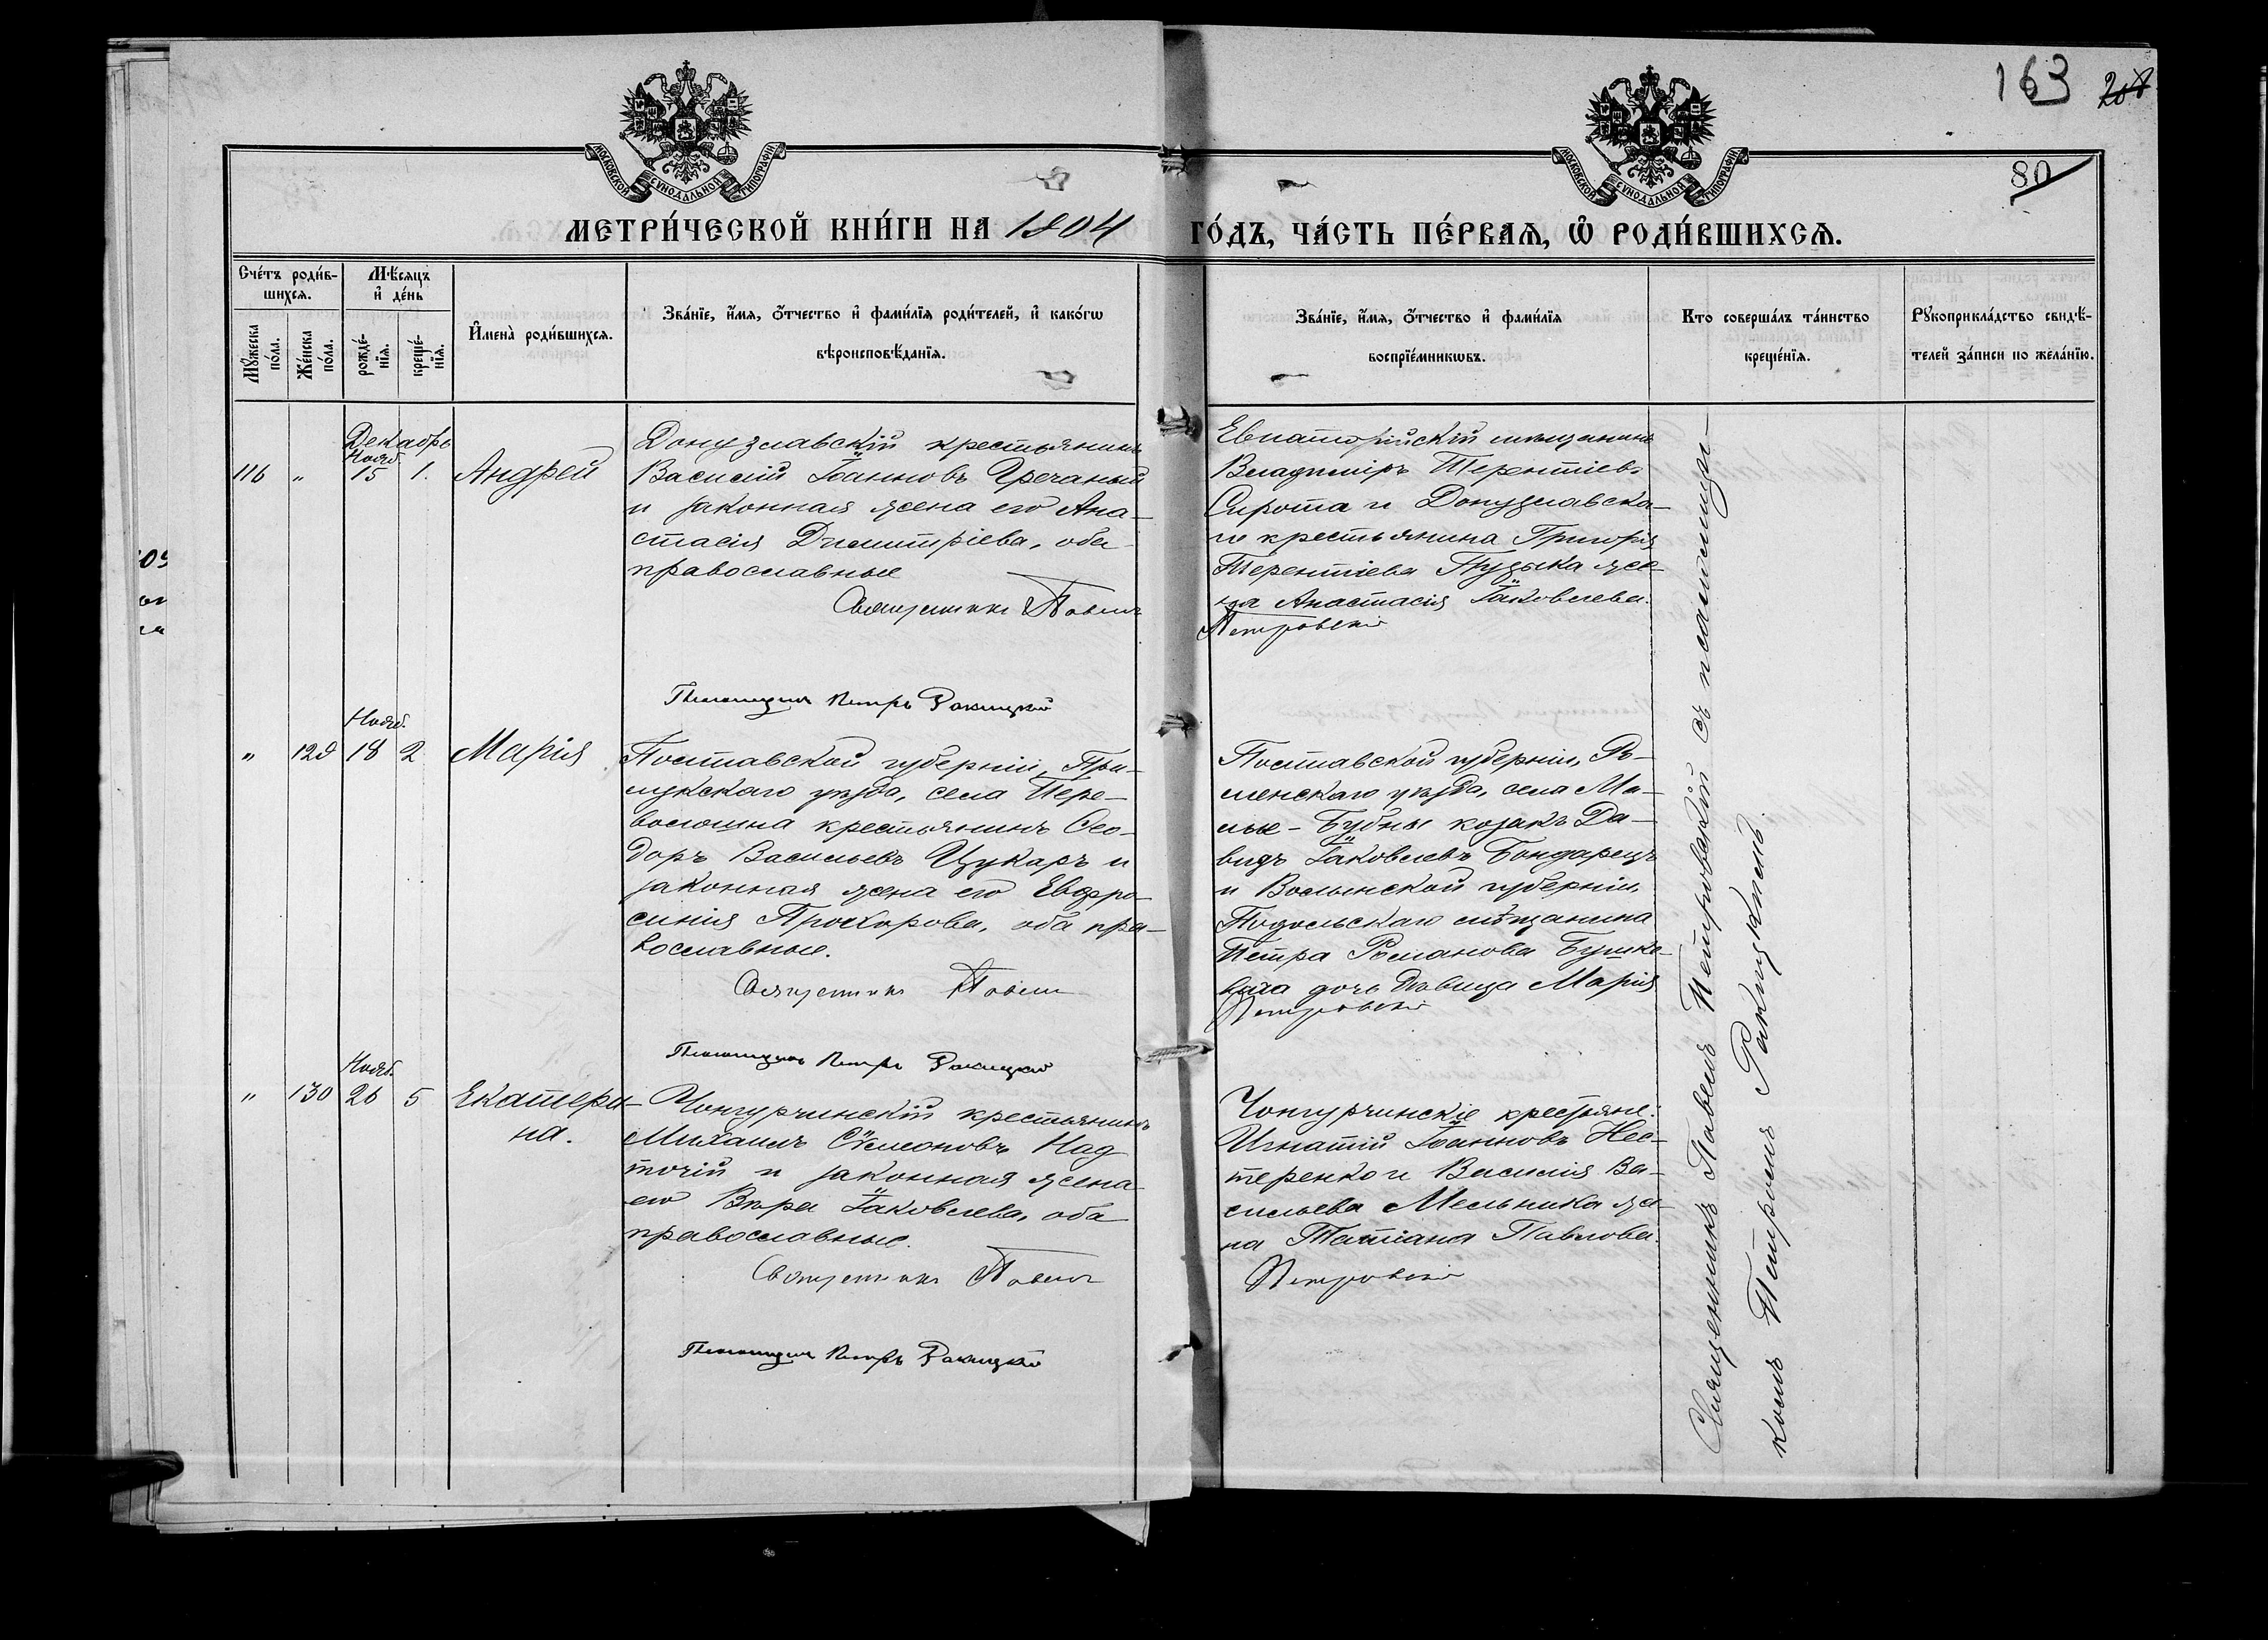 163 208
80
МОСКОВСКОЙ СѴНОДАЛЬНОЙ ТИПОГРАФІИ
МОСКОВСКОЙ СѴНОДАЛЬНОЙ ТИПОГРАФІИ
МЕТРИ́ЧЕСКОЙ КНИ́ГИ НА 1904 ГО́ДЪ, ЧА́СТЬ ПЕ́РВАѦ, Ѡ҆ РОДИ́ВШИХСѦ.
Сче́тъ роди́в-
шихсѧ.
Мꙋ́жеска по́ла.
Же́нска по́ла.
Мѣ́сѧцъ
и҆ де́нь
рожде́-
нїѧ.
креще́-
нїѧ.
И҆мена̀ роди́вшихсѧ.
Зва́нїе, и҆́мѧ, ѻ҆́тчество и҆ фами́лїѧ роди́телей, и҆ како́гѡ
вѣроисповѣ́данїѧ.
Зва́нїе, и҆́мѧ, ѻ҆́тчество и҆ фами́лїѧ
воспрїе́мникѡвъ.
Кто соверша́лъ та́инство
креще́нїѧ.
Рꙋкоприкла́дство свидѣ́-
телей за́писи по жела́нїю.
Декабрь
Нояб.
116 " 15 1. Андрей
Донузлавскій крестьянинъ
Василій Іоанновъ Гречаный
и законная жена его Ана-
стасія Димитріева, оба
православные
Священникъ Павелъ
Псаломщикъ Петръ Ракицкій
Евпаторійскій мѣщанинъ
Владиміръ Терентіевъ
Сирота и Донузлавска-
го крестьянина Григорія
Терентіева Пузыка же-
на Анастасія Іаковлева.
Петровскій
Нояб.
" 129 18 2 Марія
Полтавской губерніи, При-
лукскаго уѣзда, села Пере-
волошна крестьянинъ Ѳео-
доръ Васильевъ Цукаръ и
законная жена его Евфро-
синія Прохорова, оба пра-
вославные.
Священникъ Павелъ
Псаломщикъ Петръ Ракицкій
Полтавской губерніи, Ро-
менскаго уѣзда, села Ма-
лые-Бубны козакъ Да-
видъ Іаковлевъ Бондарецъ
и Волынской губерніи,
Подольскаго мѣщанина
Петра Романова Бушке-
вича дочь дѣвица Марія
Петровскій
Нояб.
" 130 26 5 Екатери-
на.
Чонгурчинскій крестьянинъ
Михаилъ Сѵмеоновъ Над
точій и законная жена
его Вѣра Іаковлева, оба
православные.
Священникъ Павелъ
Псаломщикъ Петръ Ракицкій
Чонгурчинскіе крестьяне:
Игнатій Іоанновъ Нес-
теренко и Василія Ва-
сильева Мельника же-
на Татіана Павлова.
Петровскій
Священникъ Павелъ Петровскій съ псаломщи-
комъ Петромъ Ракицкимъ.